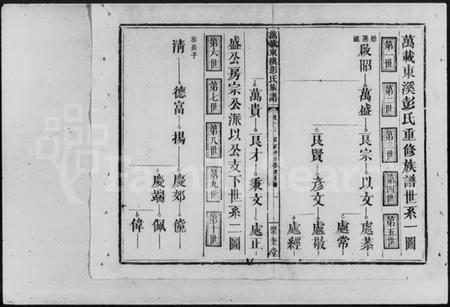 萬載東溪彭氏重修族譜世系一圖
第一世 第二世 第三世 第四世 第五世
始祖
啟昭 萬盛 良宗 以文 處恭
處常
良賢 彥文 處敬
處經
萬貴 良才 秉文 處正
萬載東溪彭氏族譜
盛公房宗公派以公支下世系二圖
第六世 第七世 第八世 第九世 第十世
恭長子
清 德富 揚 慶郊 儅
慶端 佩
偉